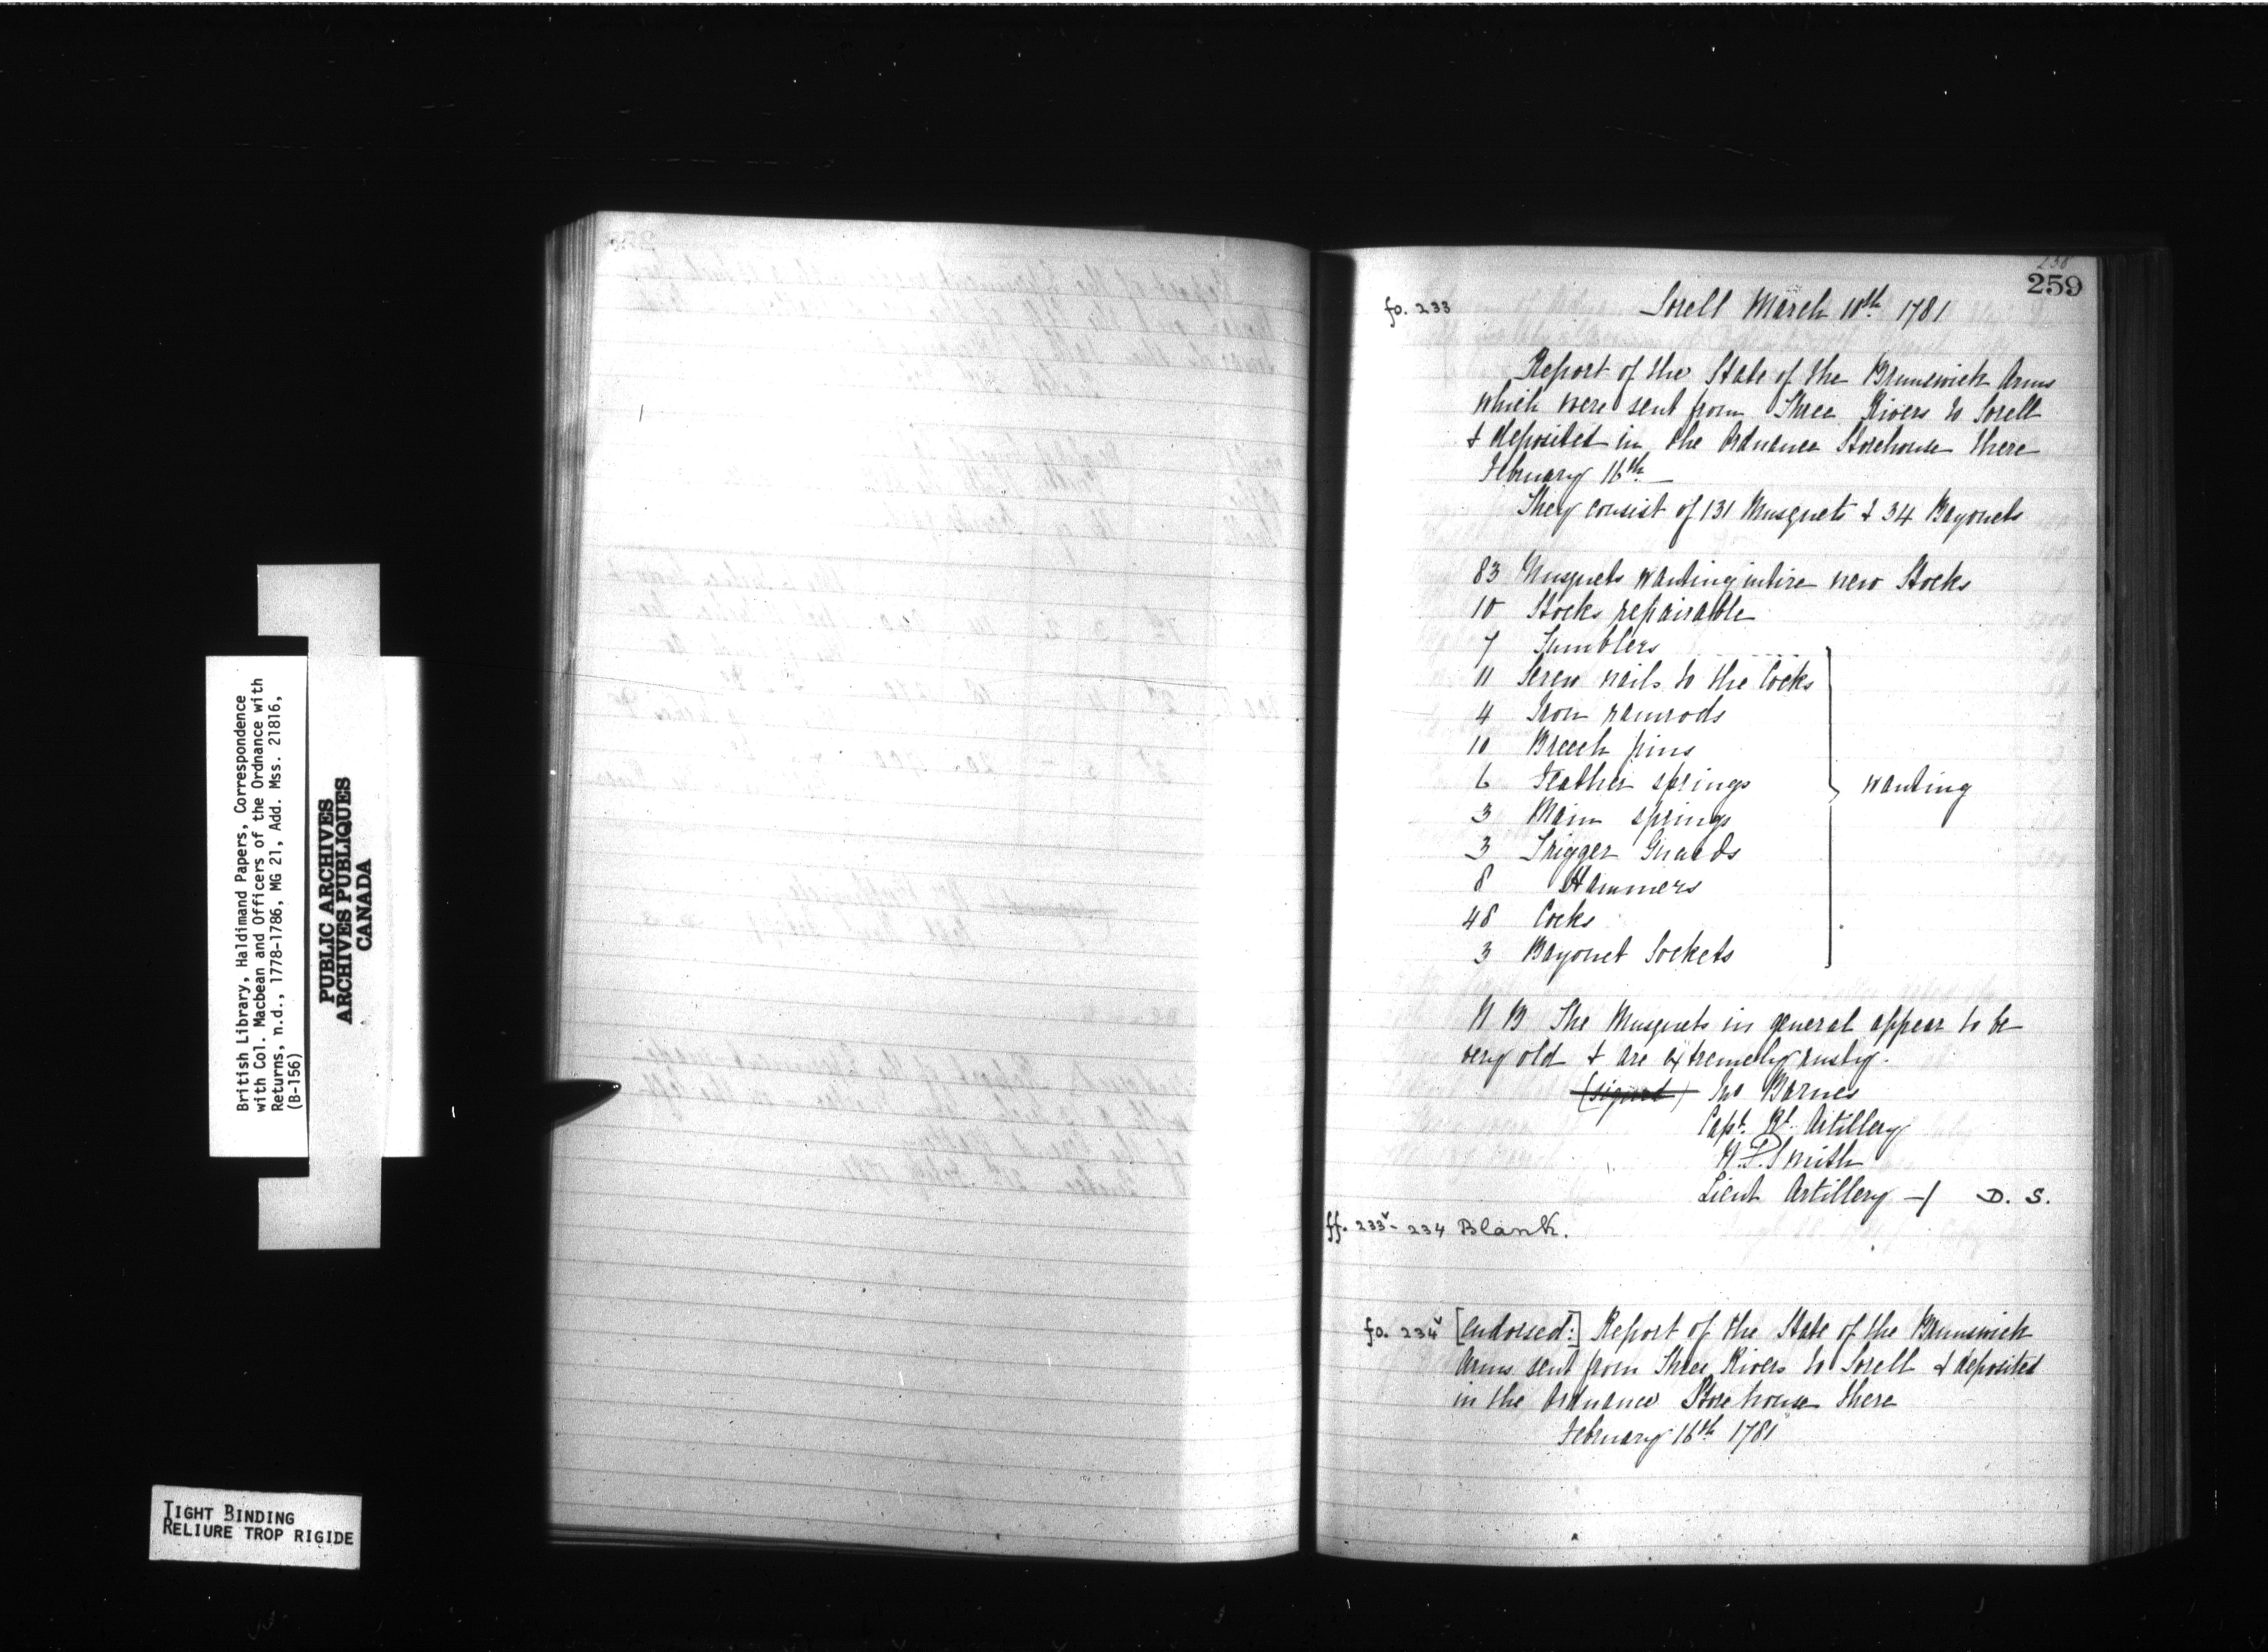 British Library, Haldimand Papers, Correspondence
with Col. Macbean and Officers of the Ordnance with
Returns, n.d., 1778-1786, MG 21, Add. Mss. 21816,
(B-156)
PUBLIC ARCHIVES
ARCHIVES PUBLIQUES
CANADA
TIGHT BINDING
RELIURE TROP RIGIDE
258
259
fo. 233
Sorell March 10th 1781
Report of the State of the Brunswick Arms
which were sent from Three Rivers to Sorell
& deposited in the Ordnance Storehouse there
February 16th
They consist of 131 Musquets & 34 Bayonets
83 Musquets wanting intire new Stocks
10 Stocks repairable
7 Tumblers
11 Screw nails to the Cocks
4 Iron ramrods
10 Breech pins
6 Feather springs
wanting
3 Main springs
3 Trigger Guards
8 Hammers
48 Cocks
3 Bayonet Sockets
N B The Musquets in general appear to be
very old & are extremely rusty.
(signed) Jno Barnes
Capt. Rt. Artillery
W. P. Smith
Lieut Artillery -/ D. S.
ff. 233v - 234 Blank.
fo. 234v [Endorsed:] Report of the State of the Brunswick
Arms sent from Three Rivers to Sorell & deposited
in the Ordnance Storehouse there
February 16th 1781